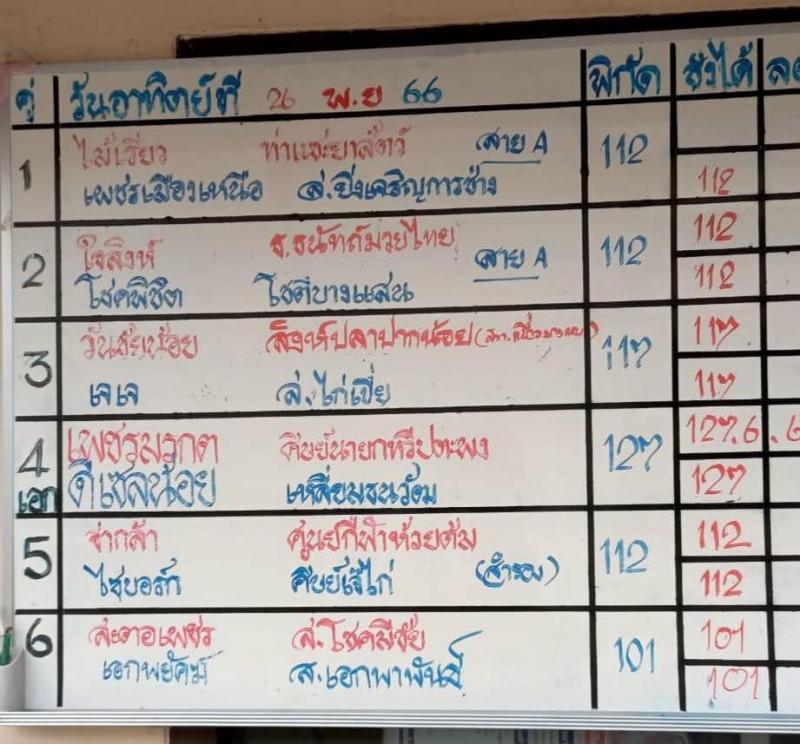 คู่ วันอาทิตย์ที่ 26 พ.ย 66 พิกัด ชั่งได้
1 ไม้เรียว ท่าแซะยาสัตว์ สาย A 112
เพชรเมืองเหนือ ส.ยิ่งเจริญการช่าง 112
2 ใจสิงห์ ธ.ธนัทถ์มวยไทย สาย A 112 112
โชคพิชิต โชติบางแสน 112
3 วันชัยน้อย สิงห์ปลาปากน้อย 117 117
เจเจ ส.ไก่เปีย 117
4 เพชรมรกต ศิษย์นายกทวีปตะพง 127 127.6 .6
เอก ดีเซลน้อย เหลี่ยมธนวัฒ 127
5 จ่ากล้า ศูนย์กีฬาห้วยต้ม 112 112
ไซบอร์ก ศิษย์เจ๊ไก่ (สำรอง) 112
6 สะตอเพชร ส.โชคมีชัย 101 101
เอกพยัคฆ์ ส.เอกพาพันธ์ 101